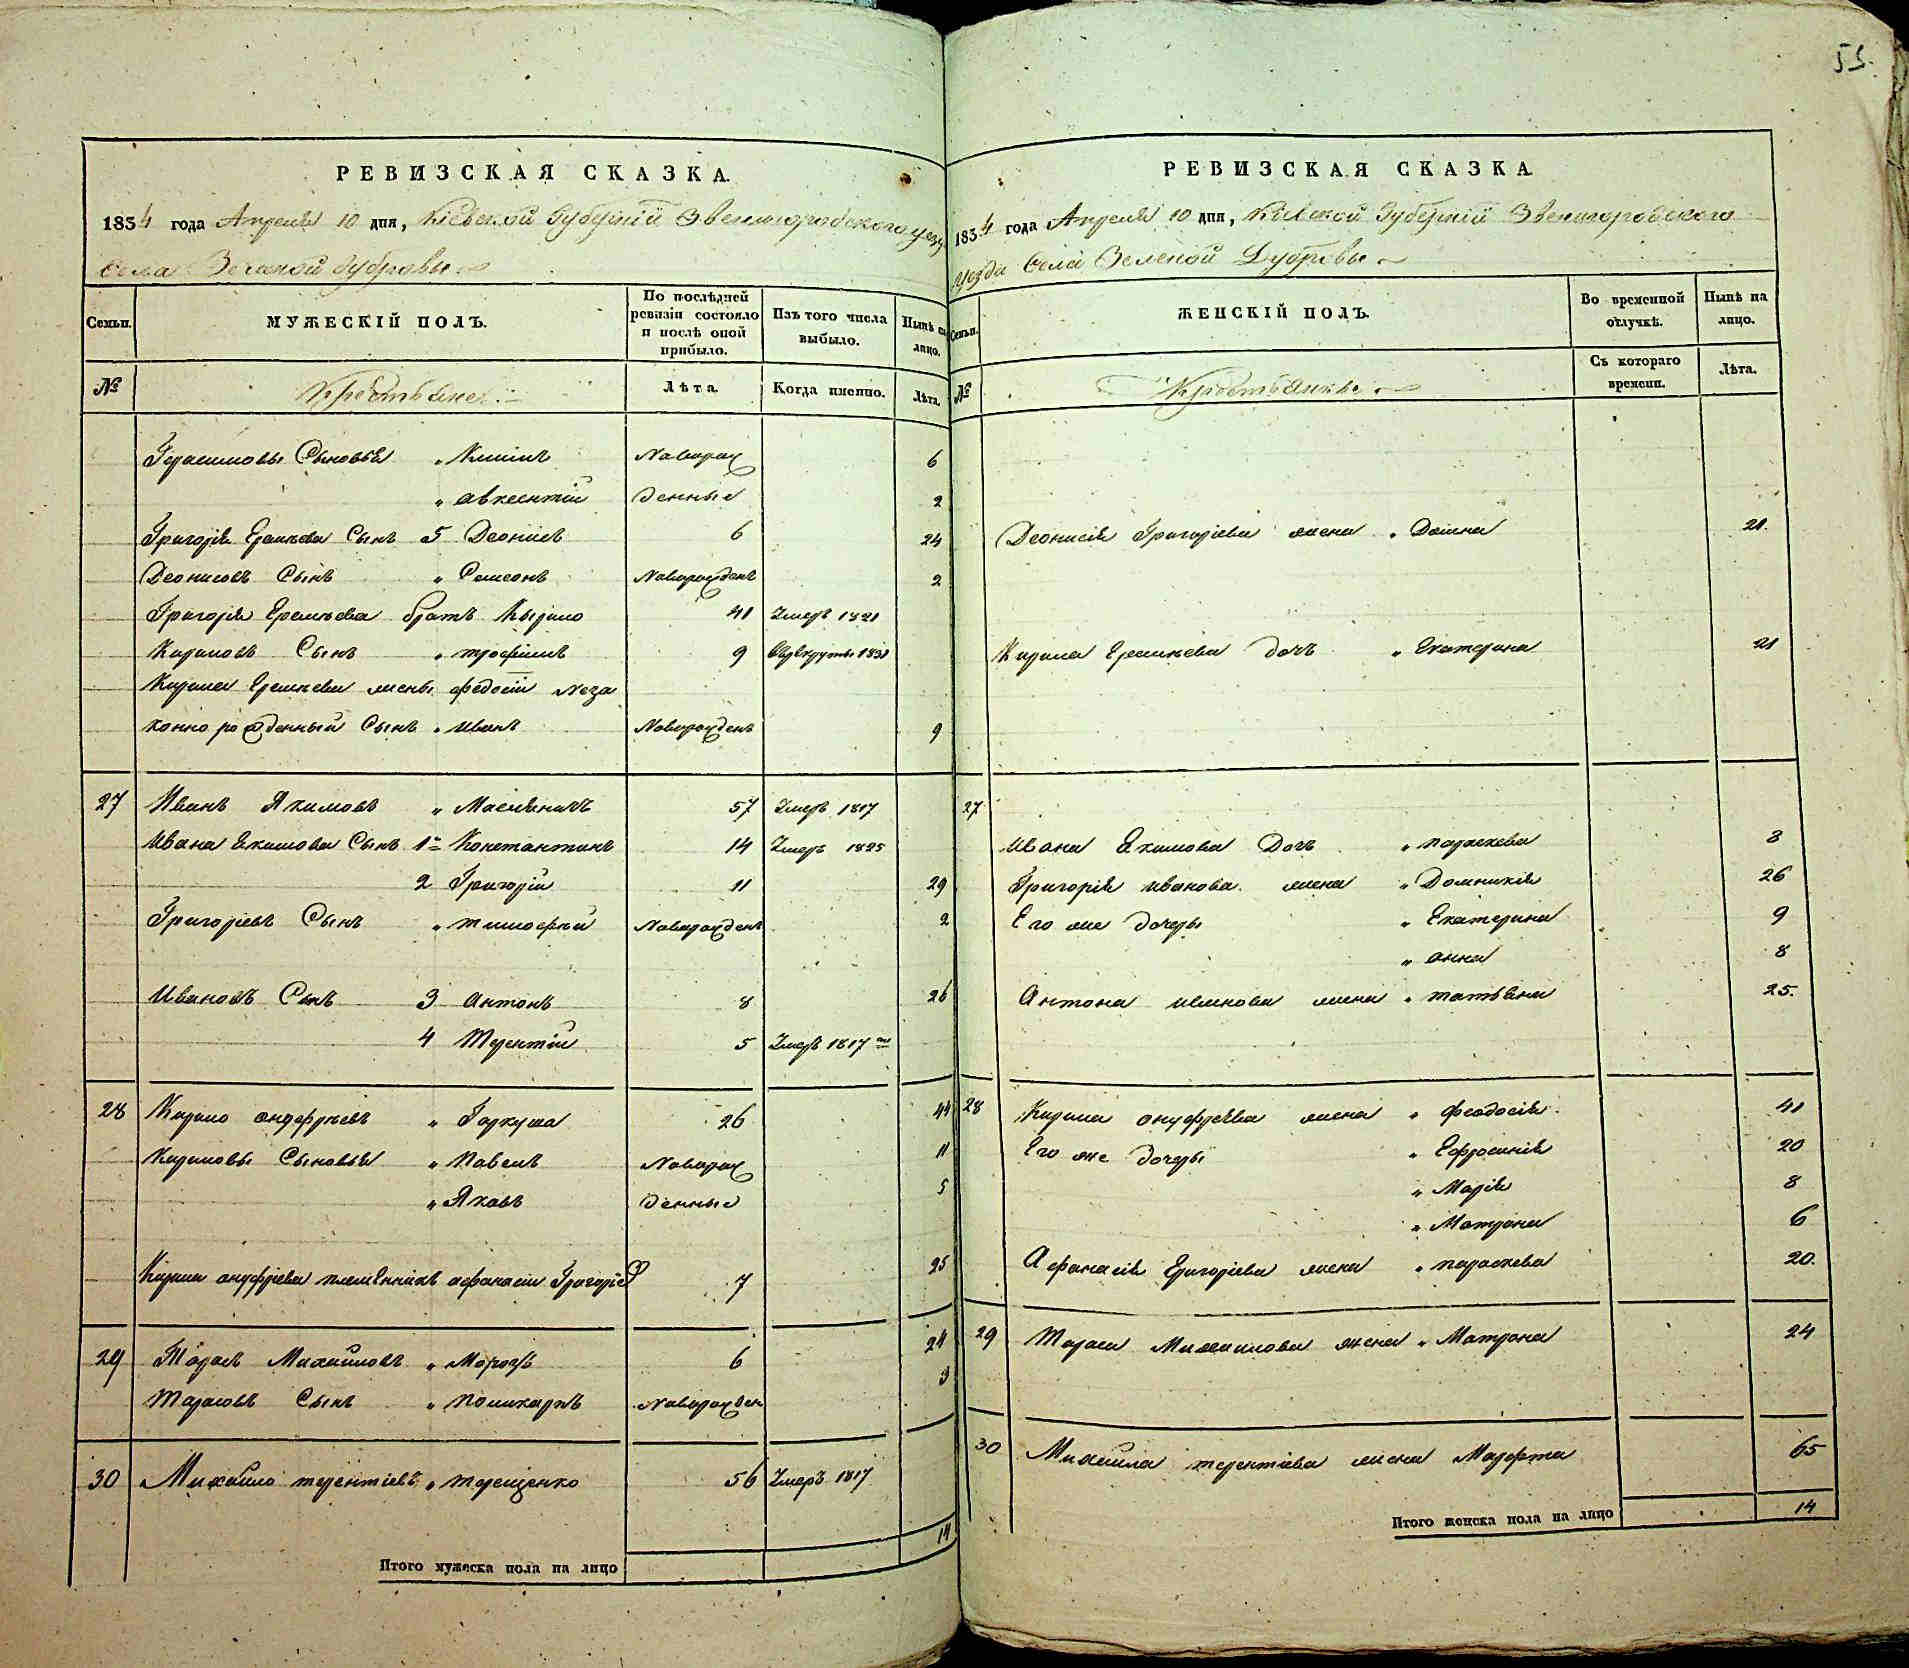 51.
РЕВИЗСКАЯ СКАЗКА.
1834 года Апреля 10 дня, Кіевской Губерніи Звенигородскаго уезда
Села Зеленой Дубровы
Семьи. МУЖЕСКІЙ ПОЛЪ. По послѣдней ревизіи состояло и послѣ оной прибыло. Изъ того числа выбыло. Нынѣ на лицо.
№ Крестьяне Лѣта. Когда именно. Лѣта.
Герасимовы Сыновья " Климъ Новорож 6
" авксентій денные 2
Григорія Еремѣева Сынъ 5 Деонисъ 6 24
Деонисовъ Сынъ " Самсонъ Новорожденъ 2
Григорія Еремѣева братъ Кырило 41 Умеръ 1821
Кириловъ Сынъ " трофимъ 9 1831
Кирила Еремѣева жены федосіи неза
конно рожденный Сынъ " иванъ Новорожденъ 9
27 Иванъ Якимовъ " 57 Умеръ 1817
Ивана Екимова Сынъ 1й Константинъ 14 Умеръ 1825
2 Григорій 11 29
Григоріевъ Сынъ " тимофѣй Новорожденъ 2
Ивановъ Сынъ 3 антонъ 8 26
4 Терентій 5 Умеръ 1817го
28 Кирило онуфріевъ " Гаркуша 26 44
Кириловы Сыновья " Павелъ Новорож 11
" Яковъ денные 5
Кирила онуфріева племенникъ афанасій Григоріев 7 25
29 Тарасъ Михайловъ " Морозъ 6 24
Тарасовъ Сынъ " поликарпъ Новорожден 3
30 Михайло терентіевъ " терещенко 56 Умеръ 1817
Итого мужеска пола на лицо 14
РЕВИЗСКАЯ СКАЗКА.
1834 года Апреля 10 дня, Кіевской Губерніи Звенигородскаго
уезда Села Зеленой Дубровы
Семьи. ЖЕНСКІЙ ПОЛЪ. Во временной отлучкѣ. Нынѣ на лицо.
№ Крестьянки Съ котораго времени. Лѣта.
Деонисія Григоріева жена " Домна 21.
Кирила Еремѣева дочь " Екатерина 21
27
Ивана Екимова Дочь " параскева 8
Григорія иванова жена " Домникія 26
Его же дочери " Екатерина 9
" анна 8
Антона иванова жена " татьяна 25.
28 Кирила онуфріева жена " феодосія 41
Его же дочери " Ефросинія 20
" Марія 8
" Матрона 6
Афанасія Григоріева жена " параскева 20.
29 Тараса Михаилова жена " Матрона 24
30 Михайла терентіева жена Марфта 65
Итого женска пола на лицо 14